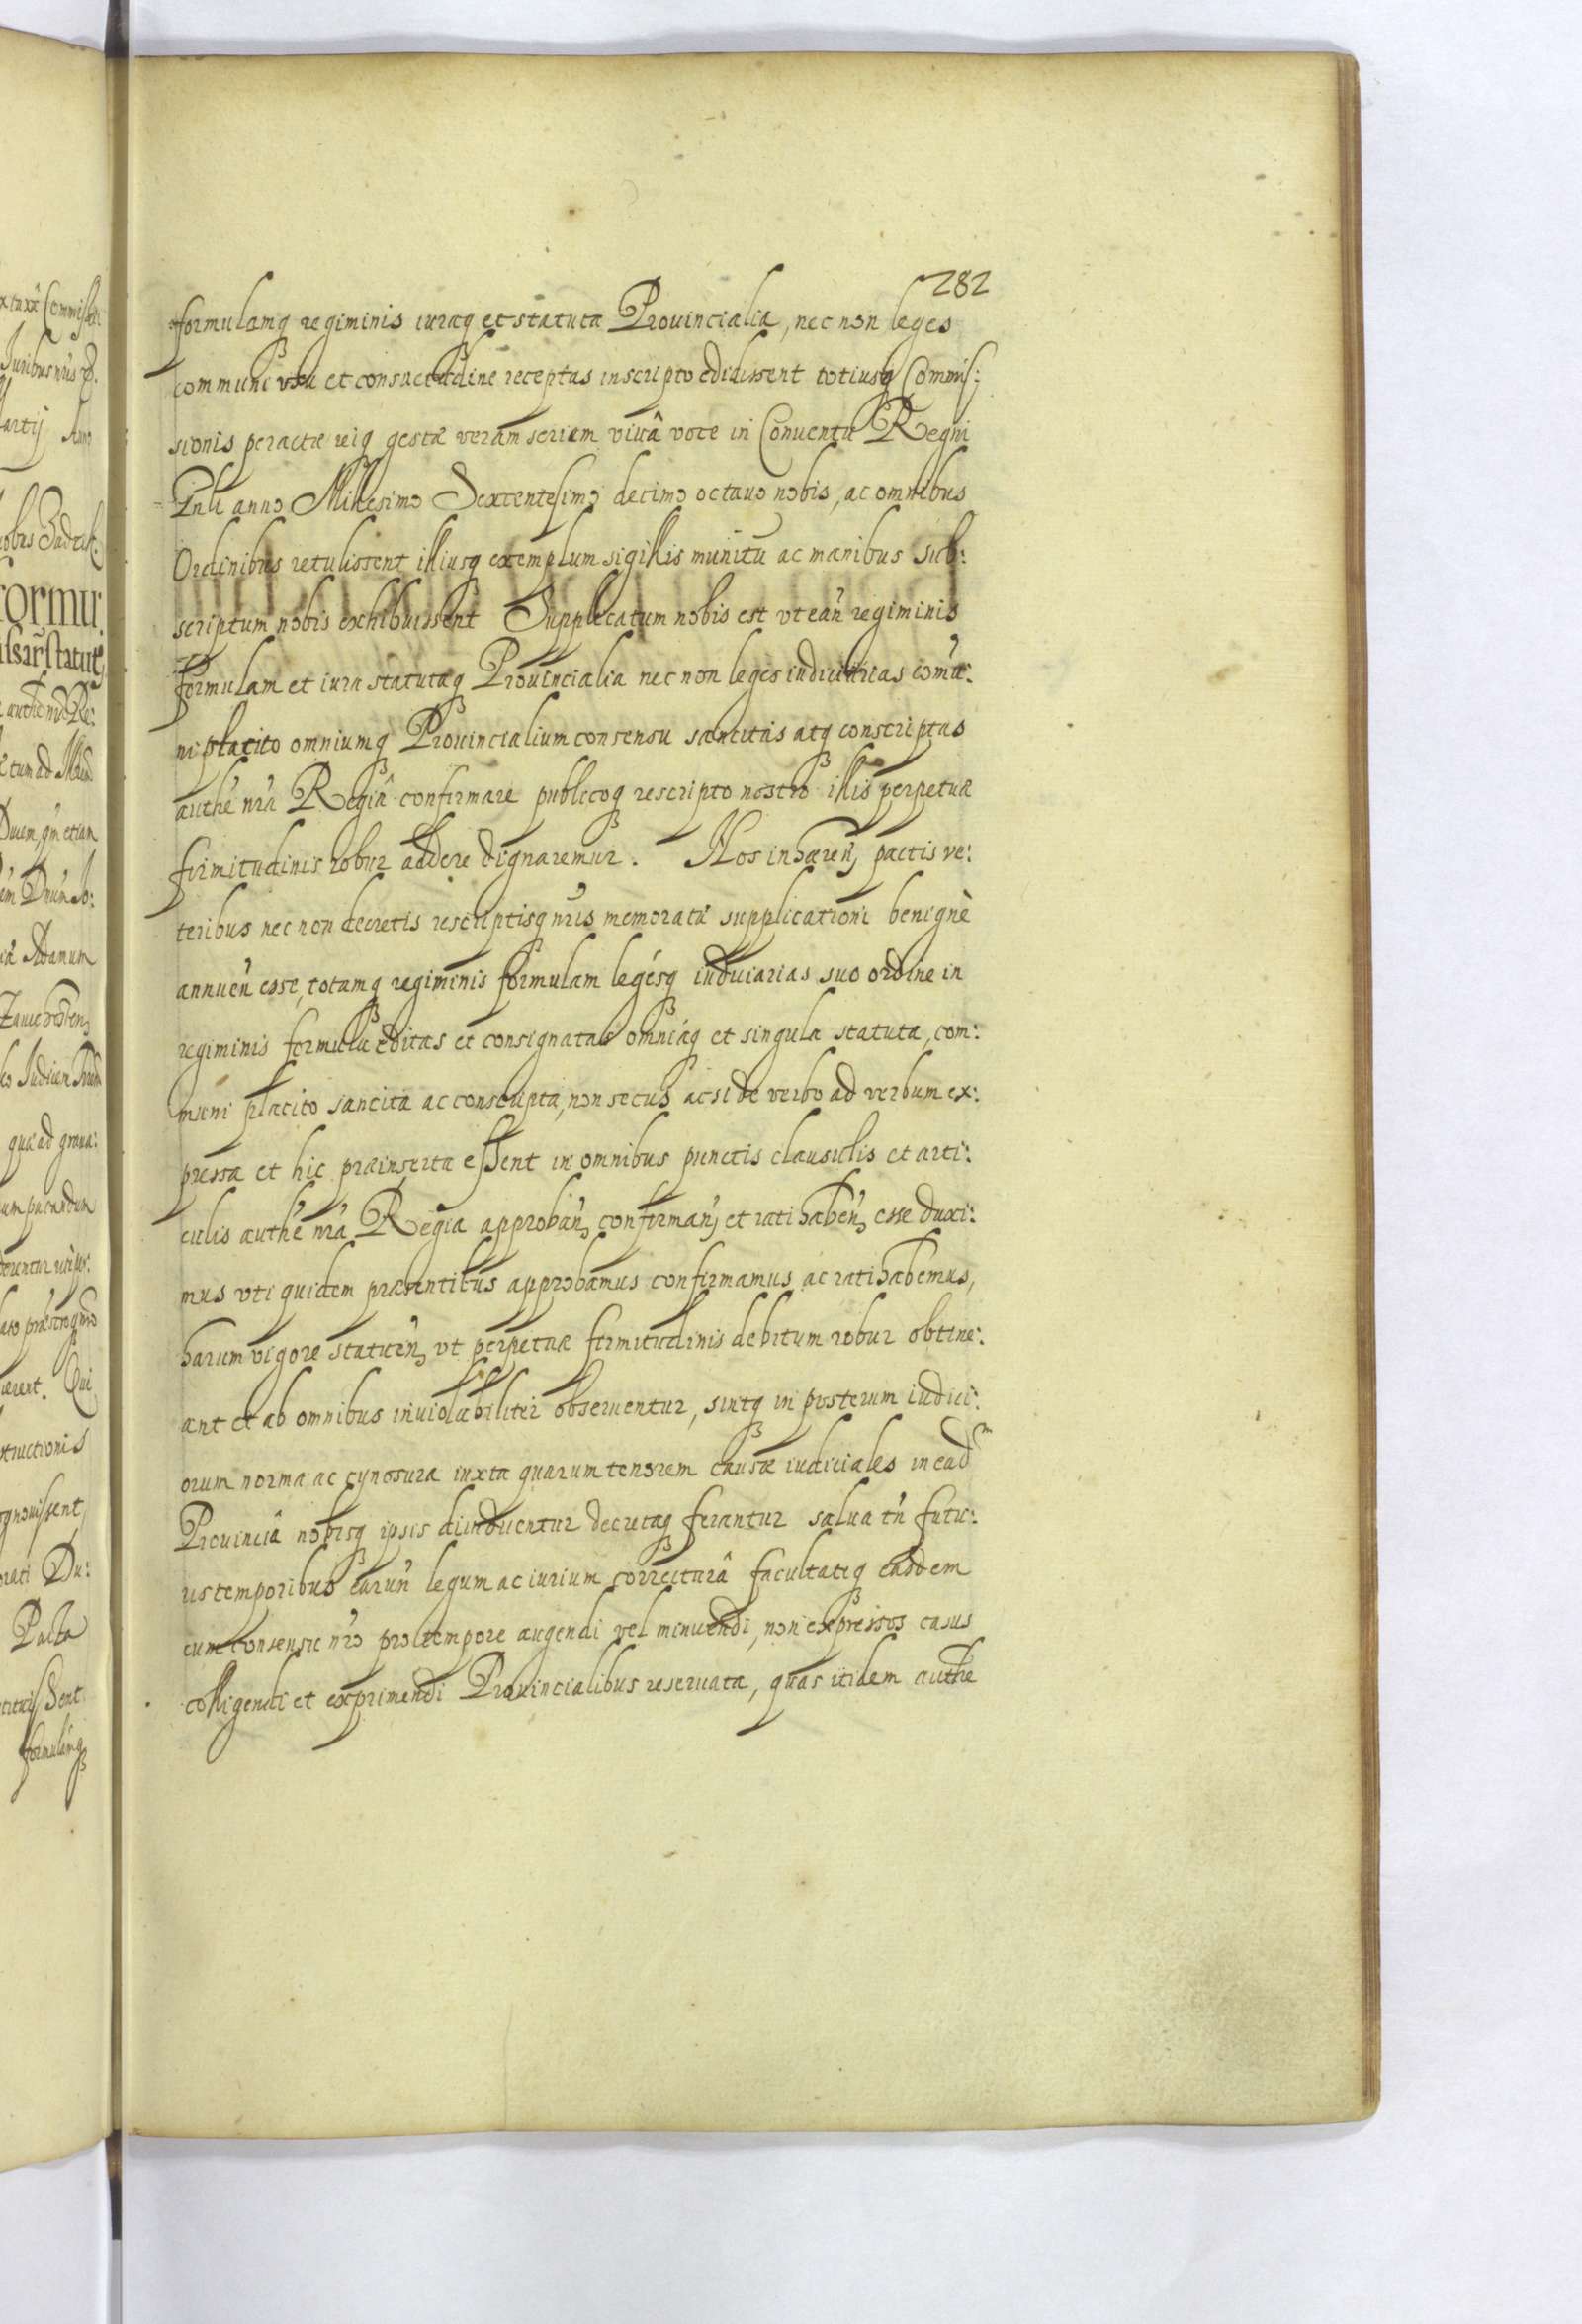 282
formulamq regiminis iuraq et statuta Prouincialia, nec non leges
communi vsu et consuetudine receptas in scripto edidissent totiusq Commis:
sionis peractæ reiq gestæ veram seriem viuâ voce in Conuentu Regni
Gnli anno Millesimo Sexcentesimo decimo octauo nobis, ac omnibus
Ordinibus retulissent illiusq exemplum sigillis munitū ac manibus sub:
scriptum nobis exhibuissent Supplicatum nobis est vt ean̄ regiminis
formulam et iura statutaq Prouincialia nec non leges iudiciarias comu:
ni placito omniumq Prouincialium consensu sancitas atq conscriptas
authē nrā Regiâ confirmare publicoq rescripto nostro illis perpetuæ
firmitudinis robur addere dignaremur. Nos inhæren̄ pactis ve:
teribus nec non decretis rescriptisq nris memoratæ supplicationi benignè
annuen̄ esse, totamq regiminis formulam legésq iudiciarias suo ordine in
regiminis formula editas et consignatas omniaq et singula statuta, com:
muni placito sancita ac conscripta, non secus ac si de verbo ad verbum ex:
pressa et hic præinserta essent in omnibus punctis clausulis et arti:
culis authē nrā Regia approban̄ confirman̄ et ratihaben̄ esse duxi:
mus vti quidem præsentibus approbamus confirmamus ac ratihabemus,
harum vigore statuen̄ vt perpetuæ firmitudinis debitum robur obtine:
ant et ab omnibus inuiolabiliter obseruentur, sintq in posterum iudici:
orum norma ac cynosura iuxta quarum tenorem causæ iudiciales in eadm
Prouinciâ nobisq ipsis diiudicentur decretaq ferantur salua tn̄ futu:
ris temporibus earun̄ legum ac iurium correcturâ facultateq easdem
cum consensu nr̄o pro tempore augendi vel minuendi, non expressos casus
colligendi et exprimendi Prouincialibus reseruata, quas itidem authe